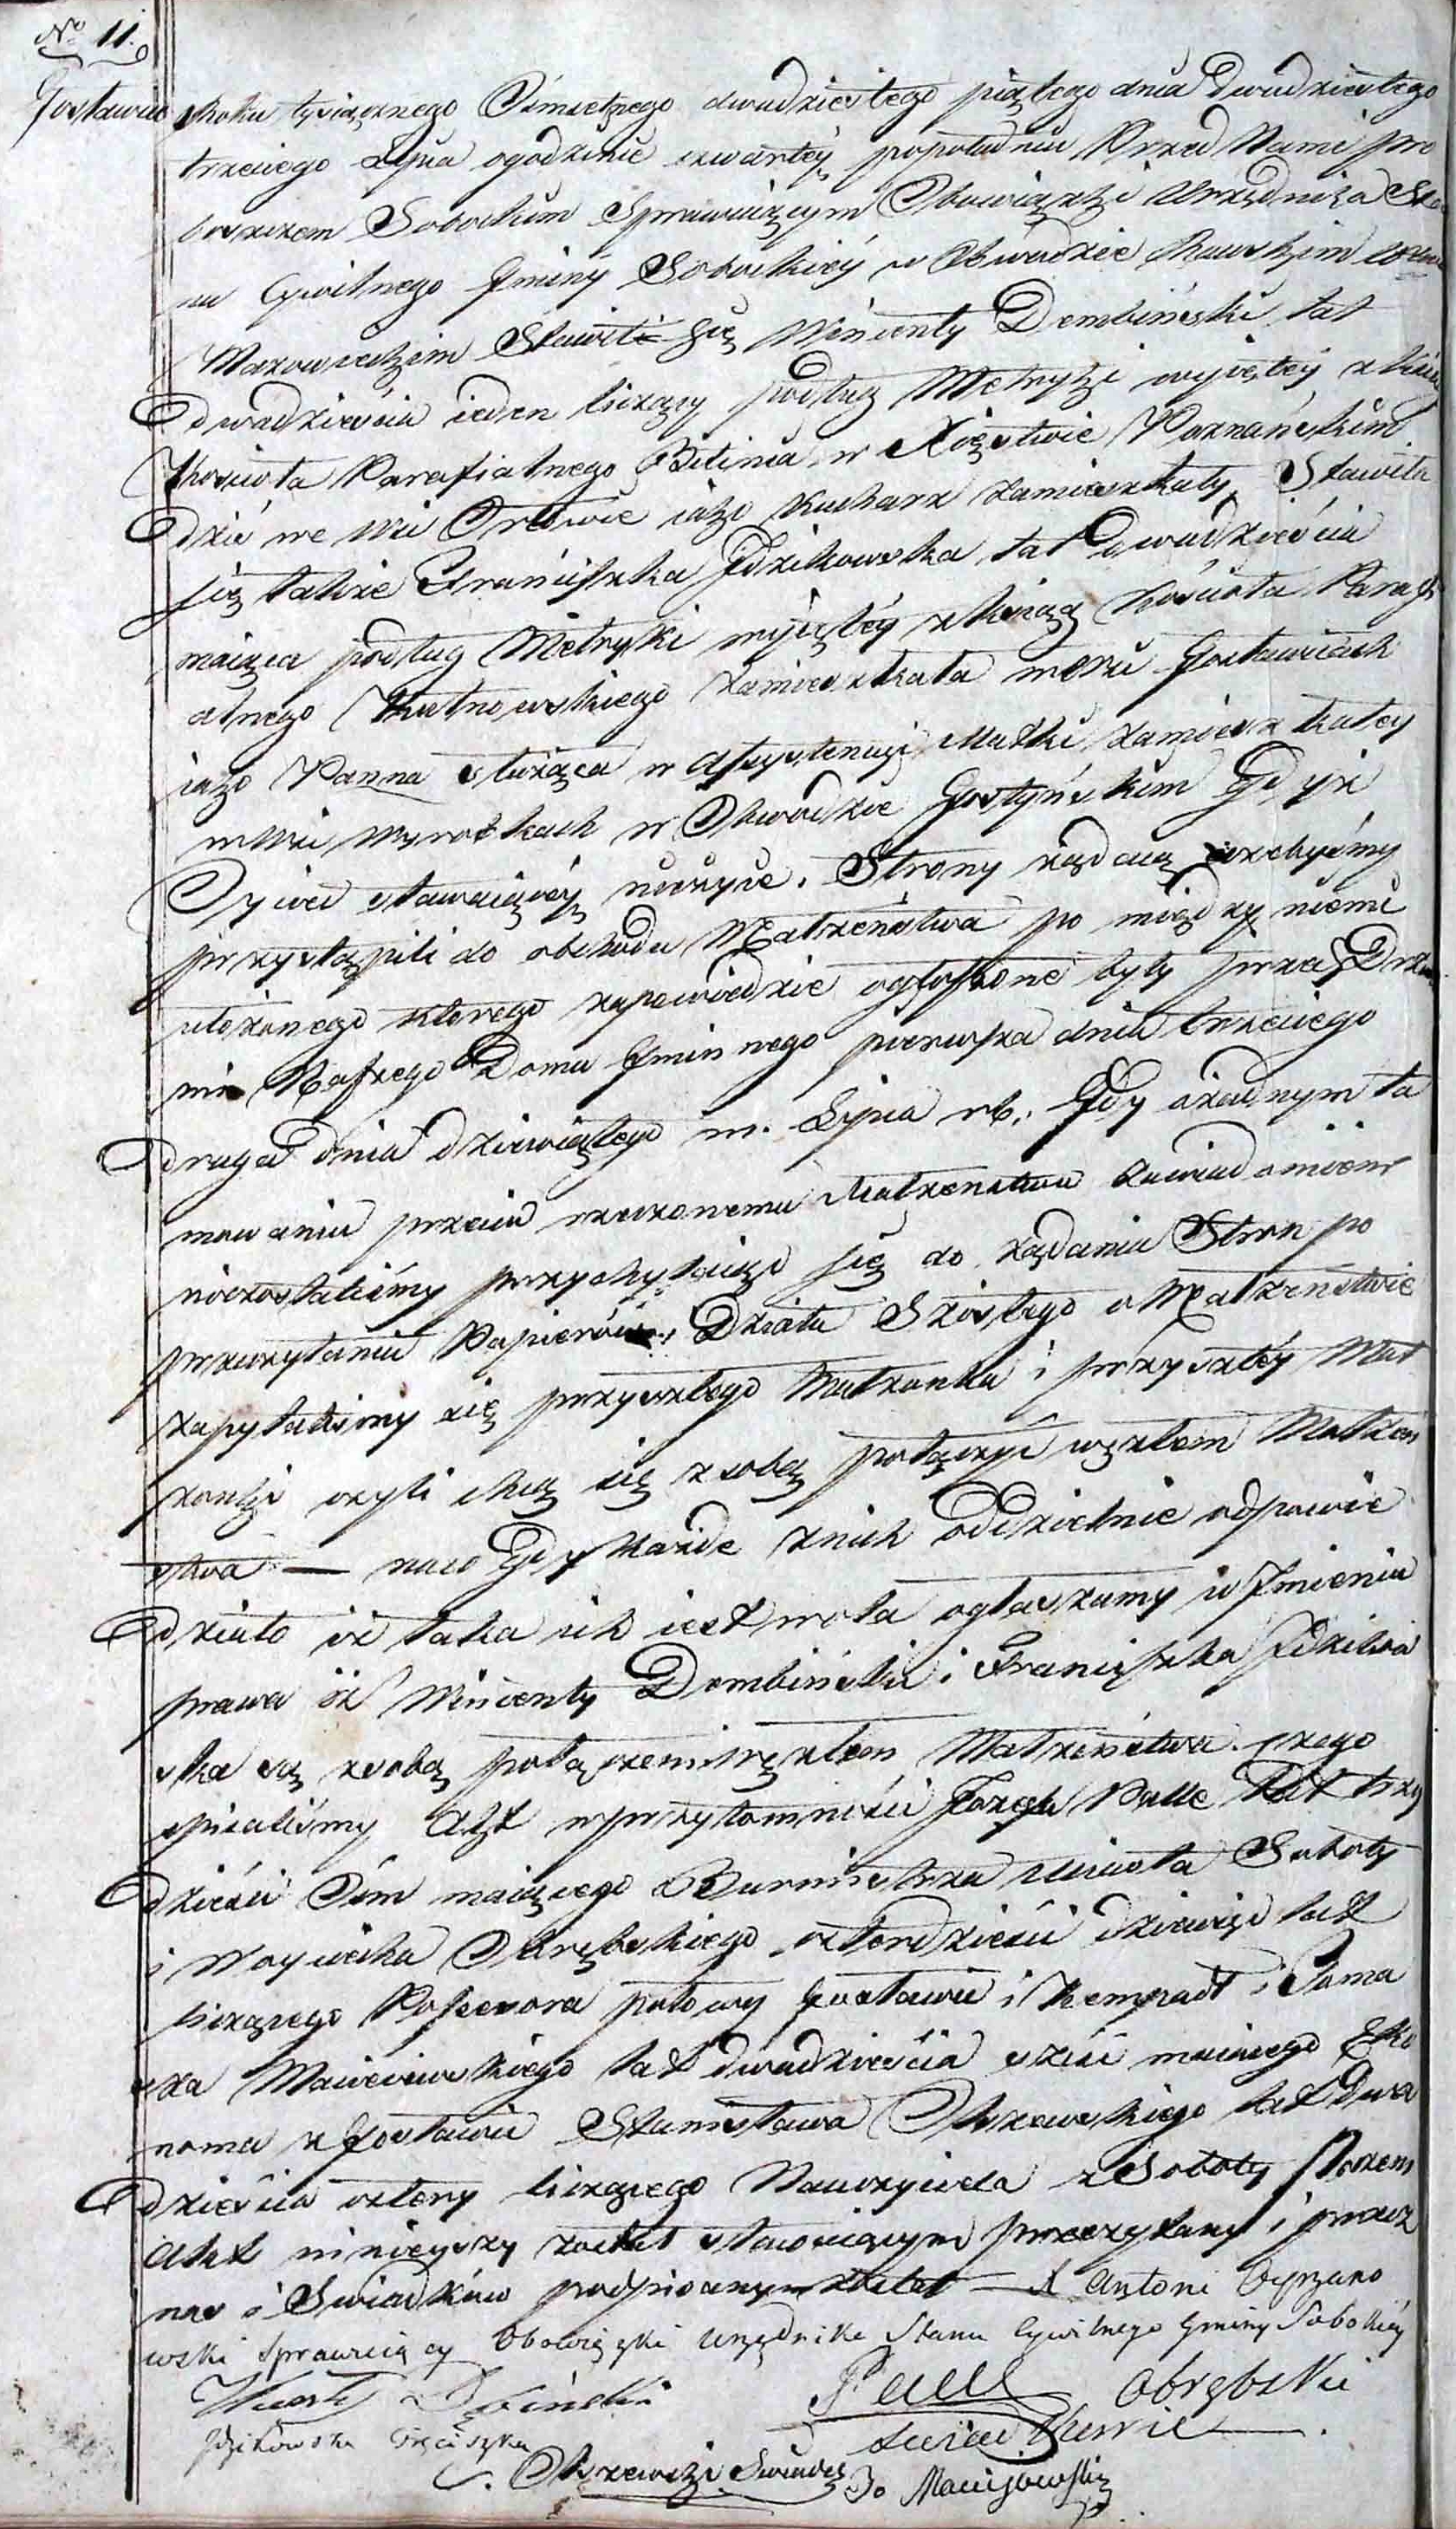 No 11.
Gosławice
Roku tysiącznego Osmsetnego dwudziestego piątego dnia Dwudziestego
trzeciego Lipca ogodzinie czwartéy popołudniu Przed Nami pro
boszczem Sobockim Sprawuiącym Obowiązki Urzędnika Sta
nu Cywilnego Gminy Sobockiéy w Obwodzie Rawskim
Mazowieckim Stawił Się Wincenty Dembiński lat
dwadzieścia ieden liczący podług Metryki wyiętéy z
Kościoła Parafialnego w Xięstwie Poznańskim
dziś we Wsi Orłowie iako Kucharz zamieszkały Stawiła
się także Franciszka Jdzikowska lat dwadzieścia
maiąca podług Metryki wyiętéy z Xiąg Kościoła Parafi
alnego Kutnowskiego zamieszkała wewsi Gosławicach
iako Panna służąca w assystencyi Matki zamieszkałey
wWsi w Obwodzie Gostyńskim Gdyż
Oyciec stawaiącéy nieżyie. Strony żądaią ażebyśmy
przystąpili do obchodu Małżeństwa po między niemi
ułożonego którego zapowiedzie ogłoszone były przed Drzwia
mi Naszego Domu Gminnego pierwsza dnia trzeciego
druga dnia dziewiątego m. Lipca rb. Gdy ożadnym ta
mowaniu przeciw rzeczonemu Małżeństwu zawiadomieni
niezostaliśmy przychylaiąc się do żądania Stron po
przeczytaniu Papierów i Działu Szóstego o Małżeństwie
zapytaliśmy się przyszłego Małżonka i przyszłéy Mał
żonki czyli chcą się z sobą połączyć węzłem Małżeń
stwa — naco Gdy Każde znich oddzielnie odpowie
działo iż taka ich iest wola ogłaszamy w Jmieniu
prawa iż Wincenty Dembiński i Franciszka Jdziko
ska są zsobą połączeni węzłem Małżeństwa. czego
spisaliśmy Akt wprzytomności Jozefa Pulle lat trzy
dzieści Ośm maiącego Burmistrza Miasta Soboty
i Woyciecha Obrębskiego czterdzieści dziewięć lat
liczącego Possesora połowy Gosławic i Kempadł i Toma
sza Macieiewskiego lat dwadzieścia sześć maiącego Eko
noma z Gosławic Stanisława Olszewskiego lat Dwa
dzieścia cztery liczącego Nauczyciela z Soboty Poczem
Akt ninieyszy został stawaiącym przeczytany i przez
nas i Swiadków podpisanym został — X Antoni Cyrzano
wski Sprawuiący Obowiązki Urzędnika Stanu Cywilnego Gminy Sobockiéy
Obrębski
Jdzikowska
Swiadek Jo Macijewski